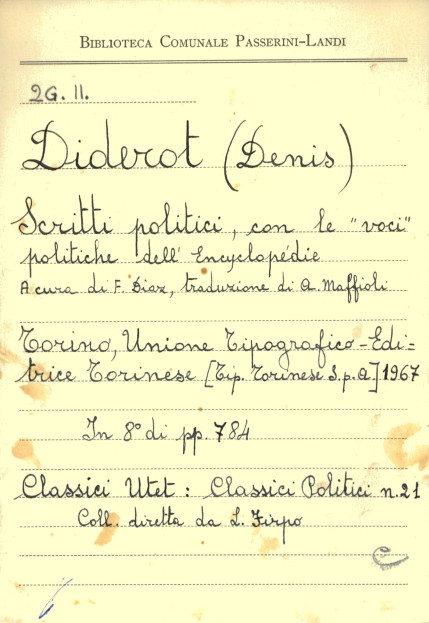 BIBLIOTECA COMUNALE PASSERINI-LANDI
2G. II.
Diderot (Denis)
Scritti politici, con le "voci"
politiche dell' Encyclopédie
A cura di F. Diaz, traduzione di A. Maffioli
Torino, Unione Tipografico-Edi=
trice Torinese [Tip. Torinese S.p.A.] 1967
In 8° di pp. 784
Classici Utet : Classici Politici n. 21
Coll. diretta da L. Firpo